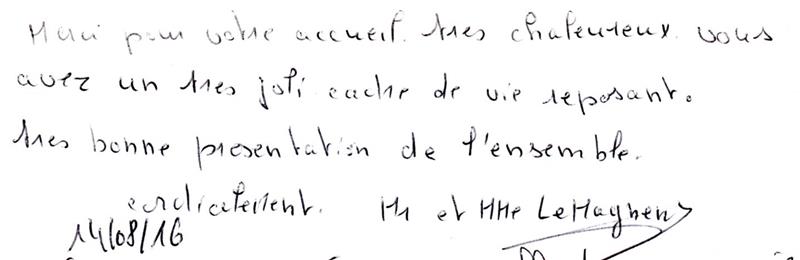 Merci pour votre accueil. tres chaleureux. vous
avez un tres joli cadre de vie reposant.
tres bonne presentation de l'ensemble.
cordialement. Mr et MMe LeMaghen
14/08/16